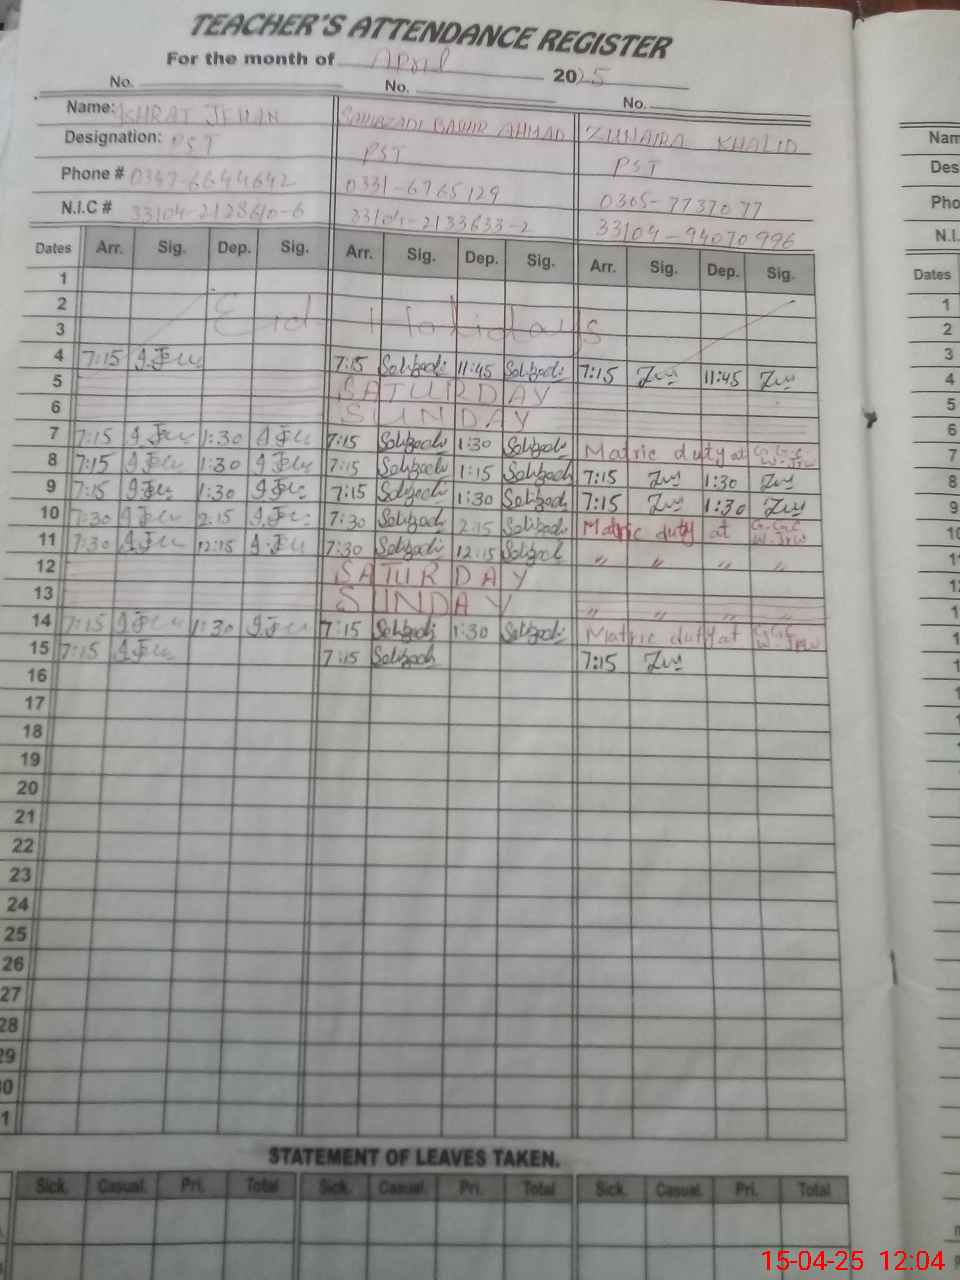 TEACHER'S ATTENDANCE REGISTER
For the month of April 2025
No. No. No.
Name: ISHRAT JEHAN SAHIBZADI BASHIR AHMAD ZUNAIRA KHALID
Designation: PST PST PST
Phone # 0347-6644642 0331-6765129 0305-7737077
N.I.C # 33104-2128610-6 33104-2133633-2 33104-94070996
Dates Arr. Sig. Dep. Sig. Arr. Sig. Dep. Sig. Arr. Sig. Dep. Sig.
1
2 Eid Holidays
3
4 7:15 7:15 11:45 7:15 11:45
5 SATURDAY
6 SUNDAY
7 7:15 1:30 7:15 1:30 Matric duty at
8 7:15 1:30 7:15 1:15 7:15 1:30
9 7:15 1:30 7:15 1:30 7:15 1:30
10 7:30 2:15 7:30 2:15 Matric duty at
11 7:30 12:15 7:30 12:15 " " " "
12 SATURDAY
13 SUNDAY " " " "
14 7:15 1:30 7:15 1:30 Matric duty at
15 7:15 7:15 7:15
16
17
18
19
20
21
22
23
24
25
26
27
28
29
30
31
STATEMENT OF LEAVES TAKEN.
Sick. Casual. Pri. Total Sick. Casual. Pri. Total Sick. Casual. Pri. Total
Nam
Des
Pho
N.I.
Dates
1
2
3
4
5
6
7
8
9
10
15-04-25 12:04